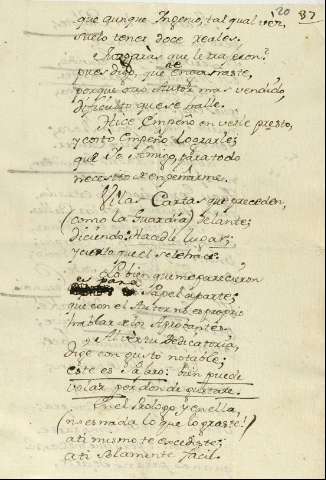 20 87
que aunque Ingenio, tal qual vez,
suelo tener doce reales.
que le
pues digo, que encaxaste,
porque otro Autor mas vendido,
dificulto que se halle.
Hice Empeño en verle presto,
y costò Empeño lograrle;
que Yo, Amigo, para todo
necessito de empeñarme.
Vi las Cartas que preceden,
(como la Guardia) delante;
diciendo: Hacedle lugar;
y cierto, que el se le hace.
bien que me parecieron
es para Papel aparte;
que con el Autor no es proprio
hablar de los Aprobantes.
Al ver tu Dedicatoria,
dixe con gusto notable;
este es Paxaro: bien puede
volar por donde gustare.
En el Prologo, y en ella,
no es nada lo que lograste!
a ti mismo te excediste;
a ti solamente facil.